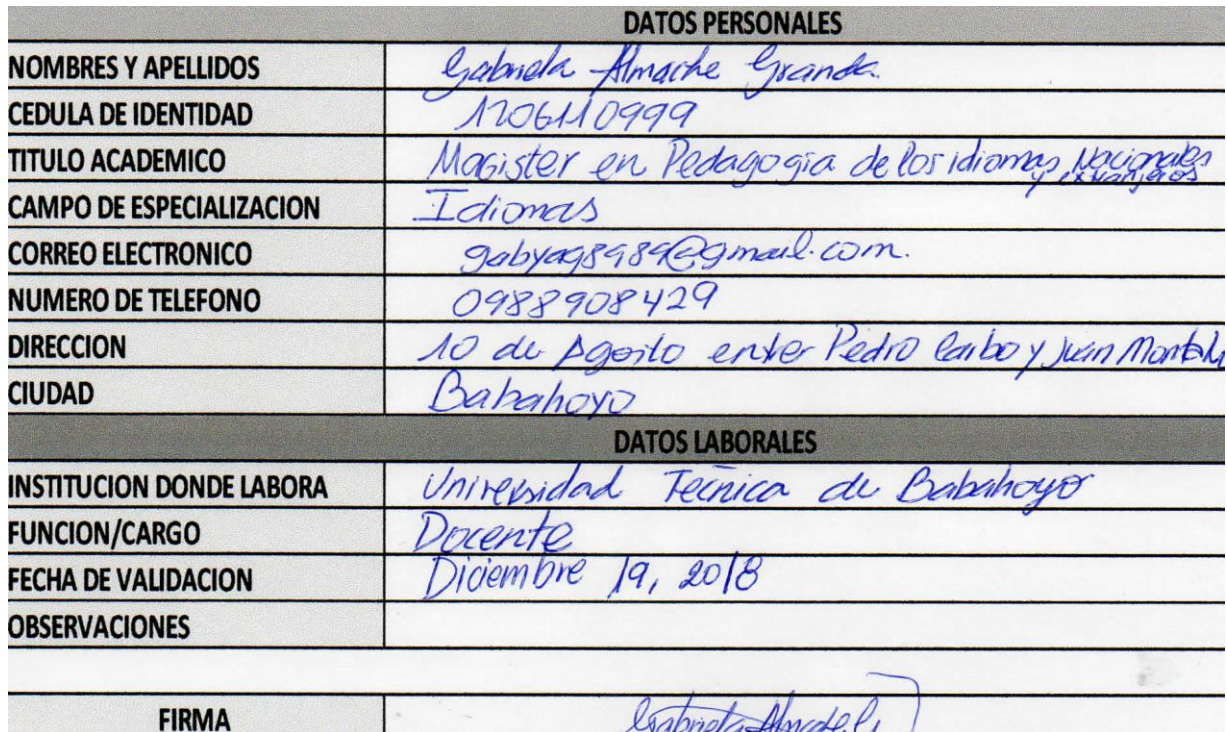 DATOS PERSONALES
NOMBRES Y APELLIDOS Gabriela Almache Granda
CEDULA DE IDENTIDAD 1206110999
TITULO ACADEMICO Magister en Pedagogia de los idiomas Nacionales
y extranjeros
CAMPO DE ESPECIALIZACION Idiomas
CORREO ELECTRONICO gabyag8989@gmail.com.
NUMERO DE TELEFONO 0988908429
DIRECCION 10 de Agosto enter Pedro Carbo y Juan
CIUDAD Babahoyo
DATOS LABORALES
INSTITUCION DONDE LABORA Universidad Tecnica de Babahoyo
FUNCION/CARGO Docente
FECHA DE VALIDACION Diciembre 19, 2018
OBSERVACIONES
FIRMA Gabriela